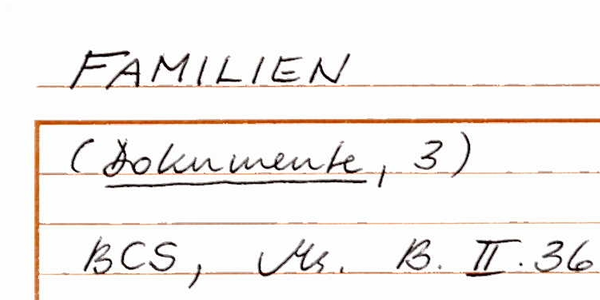 FAMILIEN
(Dokumente, 3)
BCS, Ms. B. II.36